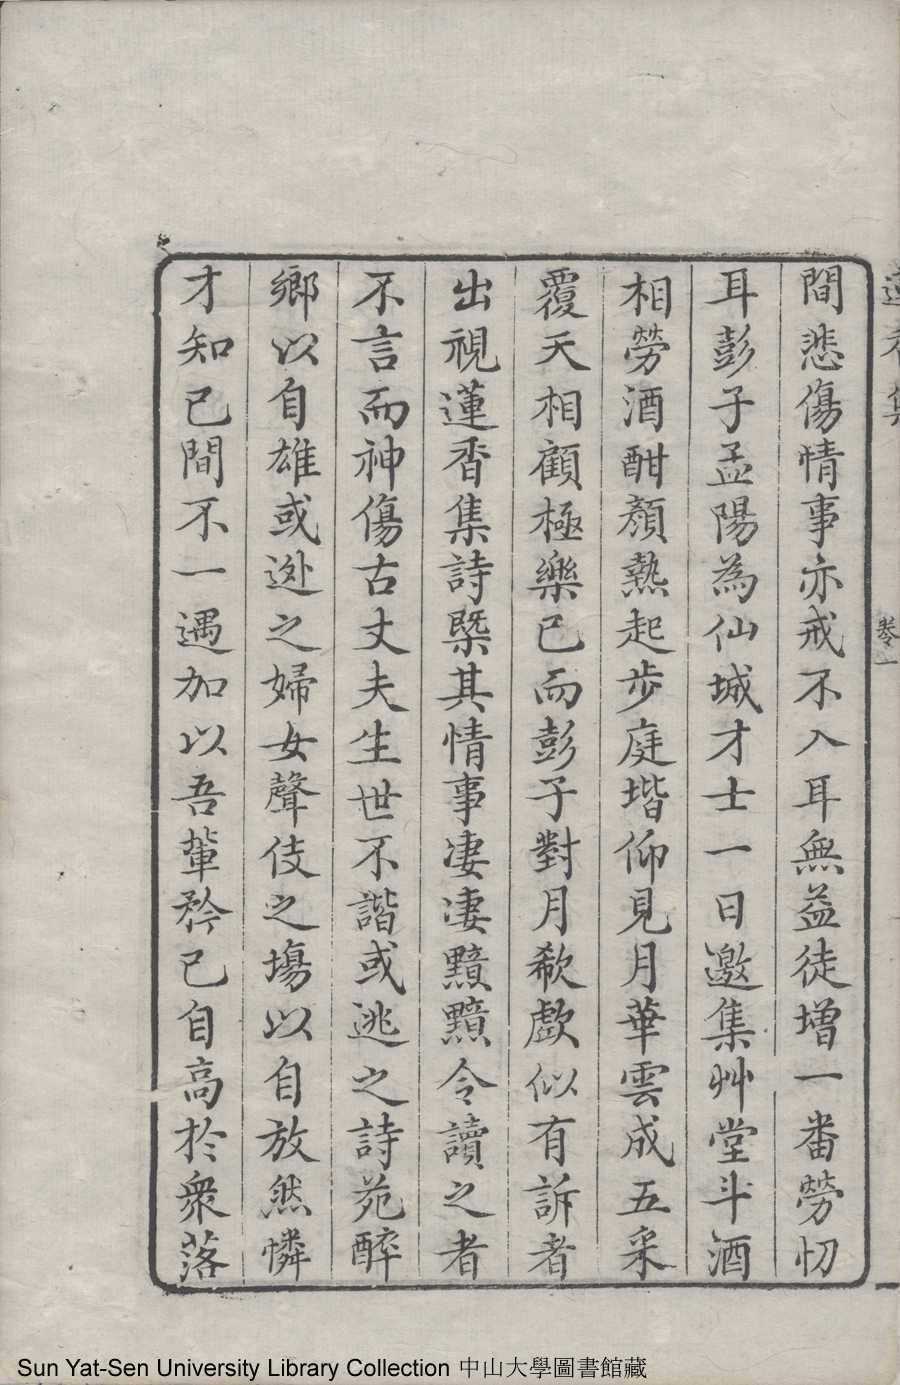 蓮香集
卷一
間悲傷情事亦戒不入耳無益徒增一番勞忉
耳彭子孟陽為仙城才士一日邀集艸堂斗酒
相勞酒酣顏熱起步庭堦仰見月華雲成五采
覆天相顧極樂已而彭子對月欷歔似有訴者
出視蓮香集詩槩其情事凄凄黯黯令讀之者
不言而神傷古丈夫生世不諧或逃之詩苑醉
鄉以自雄或逃之婦女聲伎之塲以自放然憐
才知已間不一遇加以吾輩矜已自高於衆落
Sun Yat-Sen University Library Collection 中山大學圖書館藏